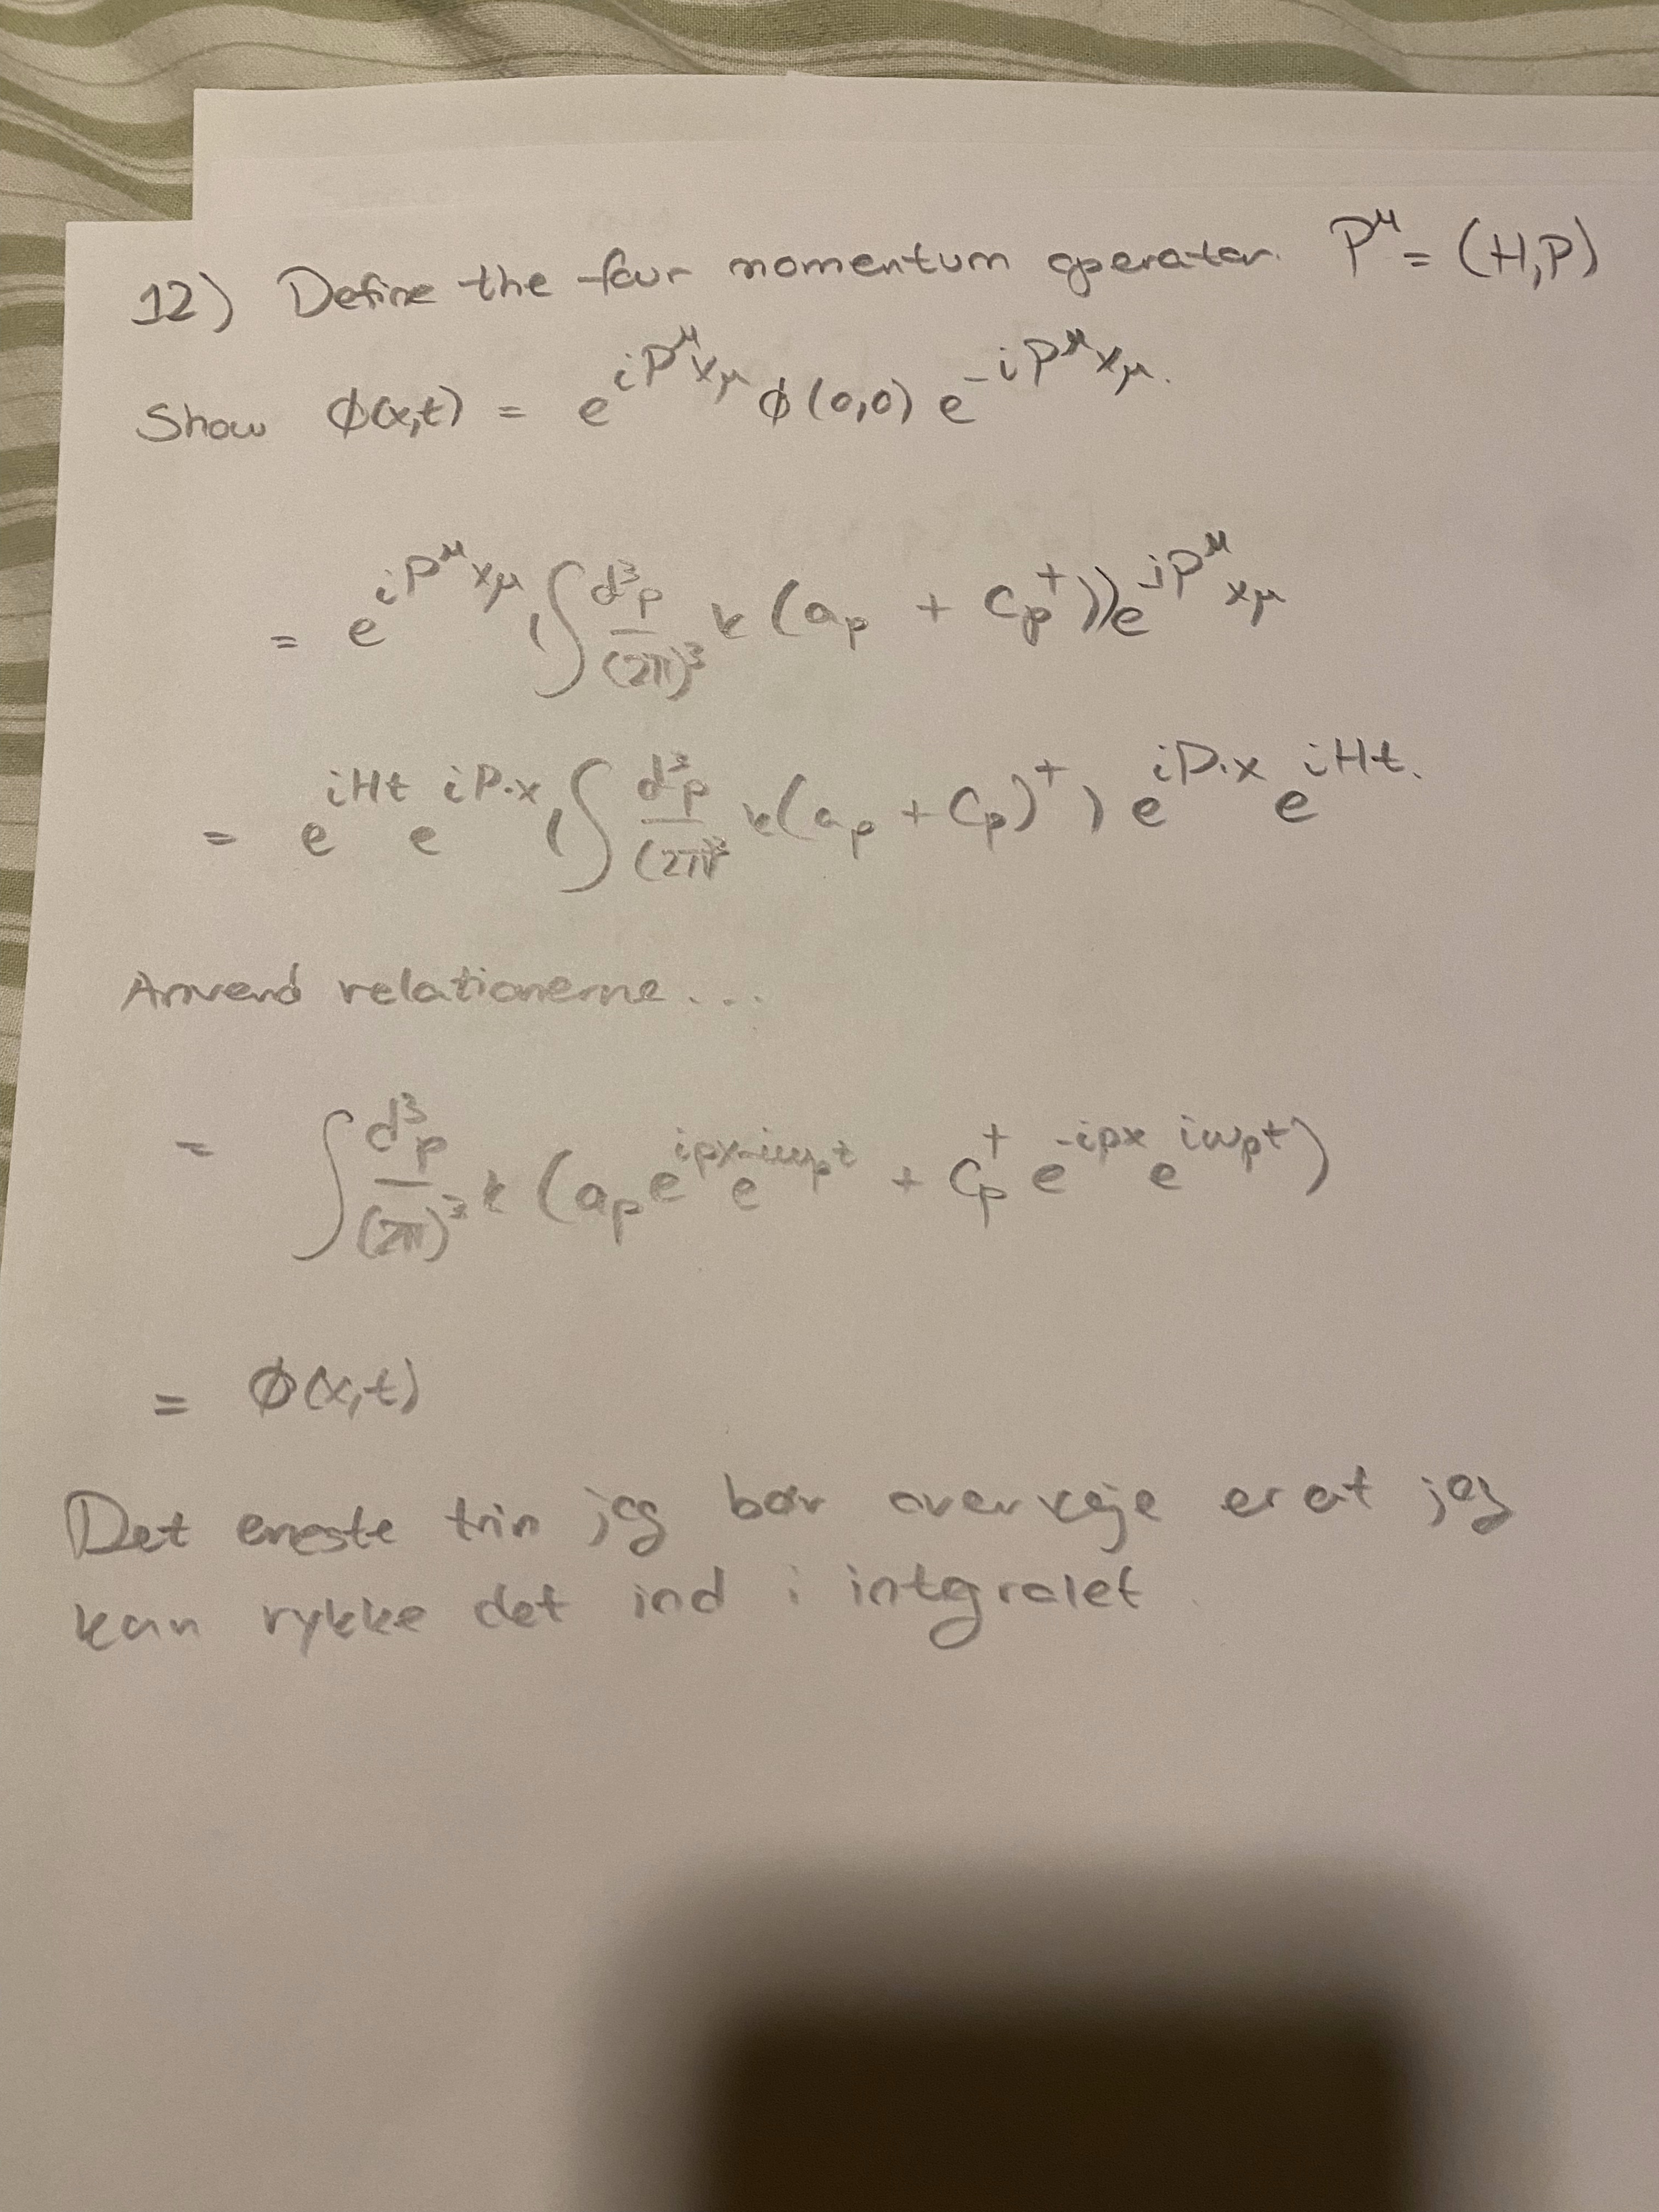 12) Define the four momentum operator. P^μ = (H,P)
Show ϕ(x,t) = e^{iP^μ x_μ} ϕ(0,0) e^{-iP^μ x_μ}.
= e^{iP^μ x_μ} (∫ d³p/(2π)³ k (a_p + c_p^†)) e^{-iP^μ x_μ}
= e^{iHt} e^{iP·x} (∫ d³p/(2π)³ k(a_p + c_p)^†) e^{iP·x} e^{iHt}.
Anvend relationerne...
= ∫ d³p/(2π)³ k (a_p e^{ipx} e^{-iω_p t} + c_p^† e^{-ipx} e^{iω_p t})
= ϕ(x,t)
Det eneste trin jeg bør overveje er at jeg
kan rykke det ind i integralet